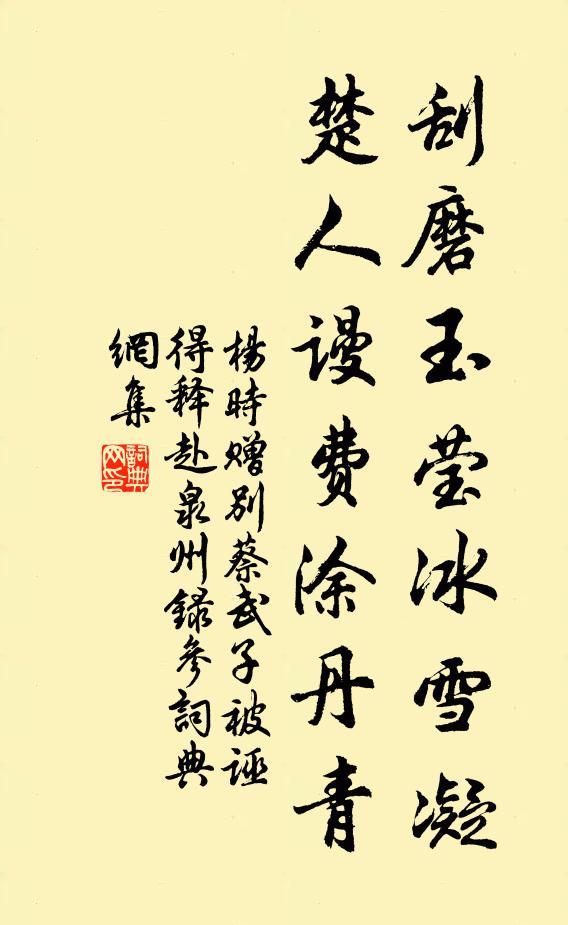 刮磨玉莹冰雪凝
楚人谩费涂丹青
杨時赠别蔡武子被诬
得释赴泉州録參詞典
網集
詞典網印